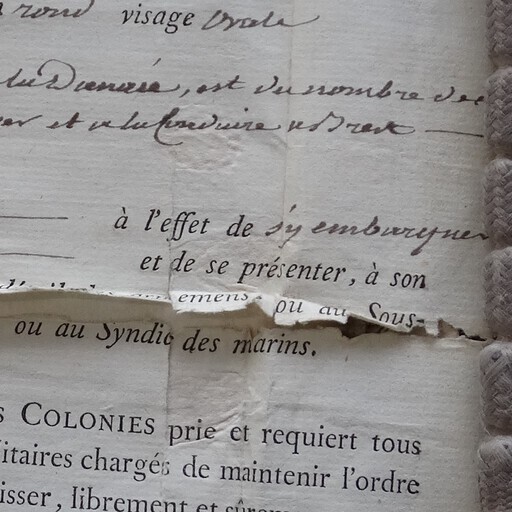 rond visage ovale
est du nombre des
et a la Conduire a Brest
à l'effet de s'y embarquer
et de se présenter, à son
ou au Sous-
ou au Syndic des marins.
COLONIES prie et requiert tous
litaires chargés de maintenir l'ordre
isser, librement et